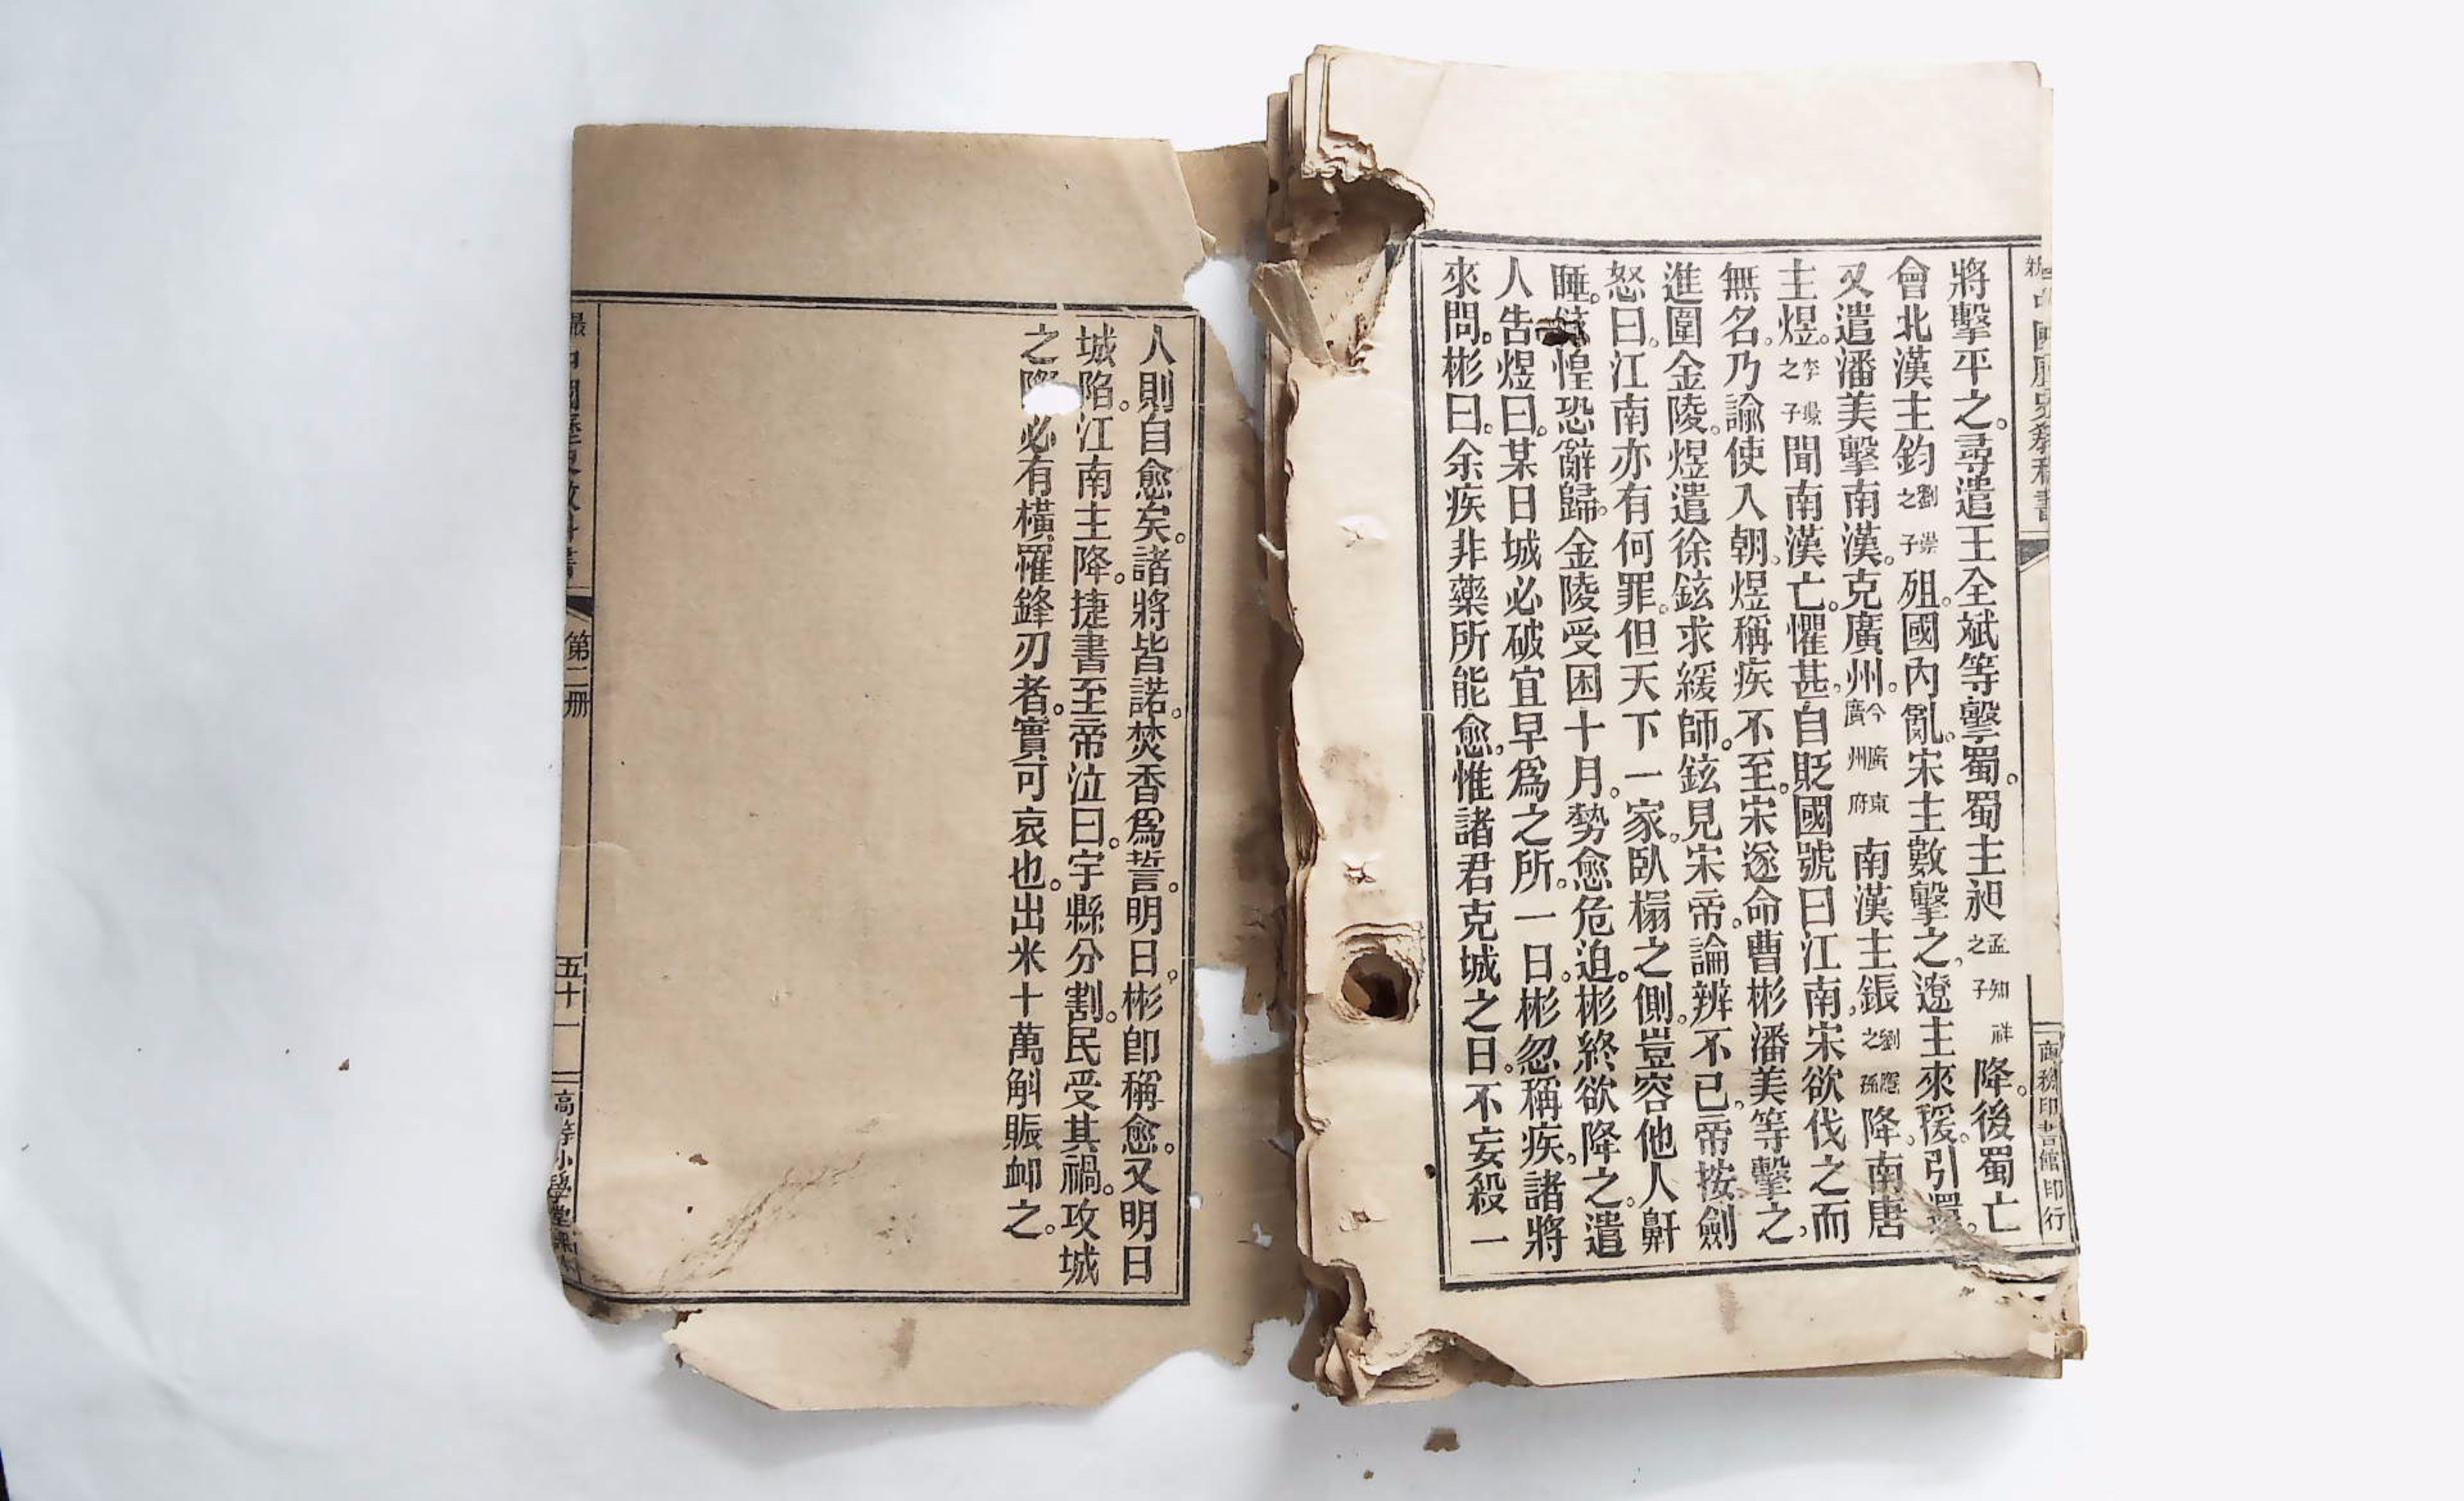 中國歷史教科書
商務印書館印行
將擊平之。尋遣王全斌等擊蜀。蜀主昶孟知祥之子降。後蜀亡
會北漢主鈞劉崇之子殂。國內亂。宋主數擊之。遼主來援。引還。
又遣潘美擊南漢。克廣州。今廣東廣州府南漢主鋹劉䶮之孫降。南唐
主煜。李景之子聞南漢亡。懼甚。自貶國號曰江南。宋欲伐之。而
無名。乃諭使入朝。煜稱疾不至。宋遂命曹彬潘美等擊之。
進圍金陵。煜遣徐鉉求緩師。鉉見宋帝。論辨不已。帝按劍
怒曰。江南亦有何罪。但天下一家。臥榻之側。豈容他人鼾
睡。鉉惶恐辭歸。金陵受困十月。勢愈危迫。彬終欲降之。遣
人告煜曰。某日城必破宜早爲之所。一日。彬忽稱疾。諸將
來問。彬曰。余疾非藥所能愈。惟諸君克城之日。不妄殺一
人則自愈矣。諸將皆諾。焚香爲誓。明日。彬卽稱愈。又明日
城陷。江南主降。捷書至。帝泣曰。宇縣分割。民受其禍。攻城
之際必有橫罹鋒刃者。實可哀也。出米十萬斛賑卹之。
最 中國歷史教科書
第二册
五十一
高等小學堂課本